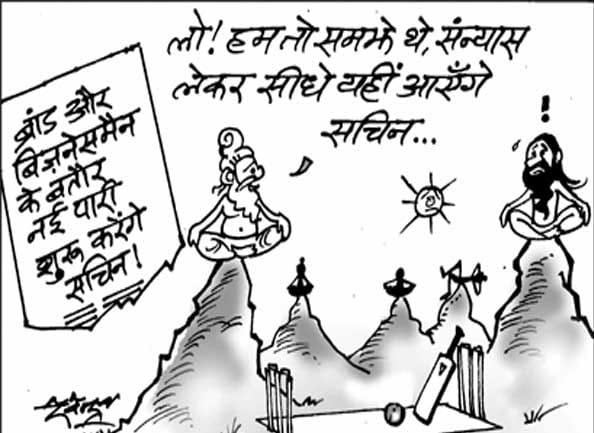 लो! हम तो समझे थे, संन्यास
लेकर सीधे यहीं आएँगे
सचिन...
ब्रांड और
बिज़नेसमैन
के बतौर
नई पारी
शुरू करेंगे
सचिन!
!